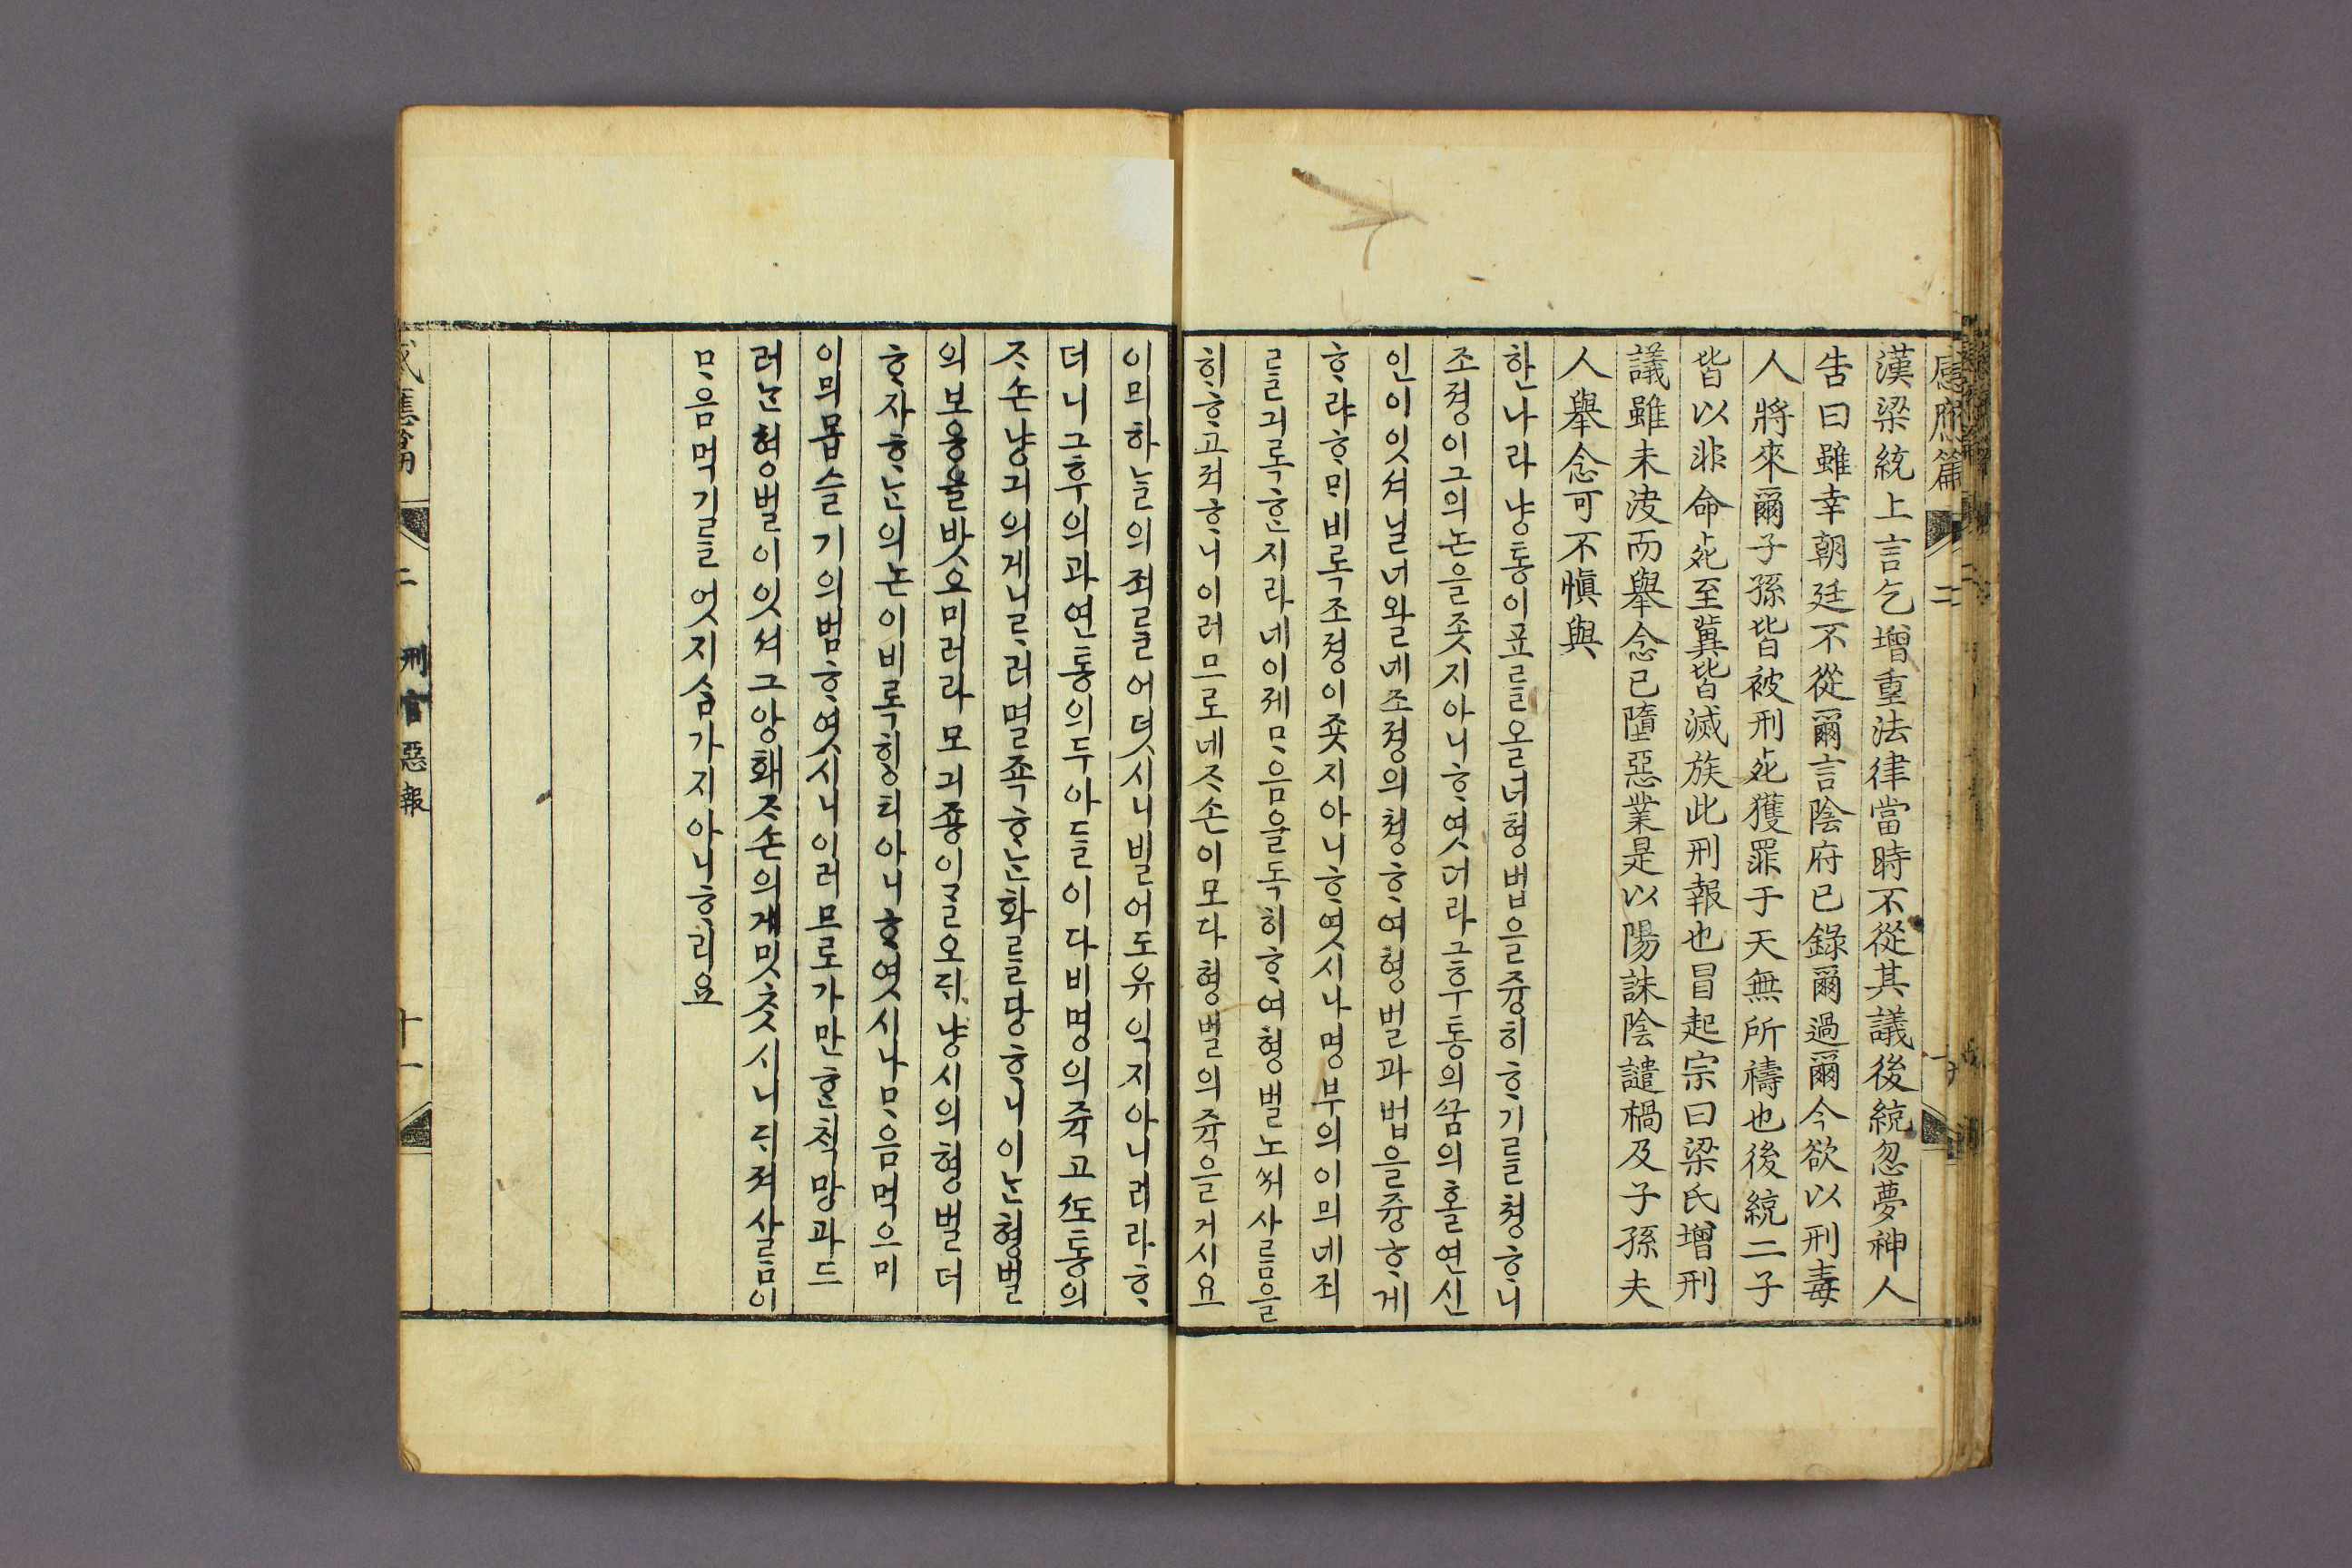 感應篇 二
漢梁統上言乞增重法律當時不從其議後統忽夢神人
告曰雖幸朝廷不從爾言陰府已錄爾過爾今欲以刑毒
人將來爾子孫皆被刑死獲罪于天無所禱也後統二子
皆以非命死至冀皆滅族此刑報也冒起宗曰梁氏增刑
議雖未决而舉念已墮惡業是以陽誅陰譴禍及子孫夫
人舉念可不愼與
한나라 냥통이 표를 올녀 형법을 즁히 ᄒᆞ기를 쳥ᄒᆞ니
조졍이 그 의논을 좃지 아니ᄒᆞ엿더라 그 후 통의 ᄭᅮᆷ의 홀연 신
인이 잇셔 닐너 왈 네 조졍의 쳥ᄒᆞ여 형벌과 법을 즁ᄒᆞ게
ᄒᆞ랴 ᄒᆞᄆᆡ 비록 조졍이 좃지 아니ᄒᆞ엿시나 명부의 이믜 네 죄
를 긔록ᄒᆞᆫ지라 네 이제 ᄆᆞ음을 독히 ᄒᆞ여 형벌노ᄡᅥ 사ᄅᆞᆷ을
ᄒᆡᄒᆞ고져 ᄒᆞ니 이러므로 네 ᄌᆞ손이 모다 형벌의 쥭을 거시요
이믜 하ᄂᆞᆯ의 죄를 어덧시니 빌어도 유익지 아니리라 ᄒᆞ
더니 그 후의 과연 통의 두 아들이 다 비명의 쥭고 ᄯᅩ 통의
ᄌᆞ손 냥긔의게 니ᄅᆞ러 멸족ᄒᆞᄂᆞᆫ 화를 당ᄒᆞ니 이ᄂᆞᆫ 형벌
의 보응을 밧으미러라 모긔죵이 ᄀᆞᆯ오ᄃᆡ 냥시의 형벌 더
ᄒᆞ자 ᄒᆞᄂᆞᆫ 의논이 비록 ᄒᆡᆼ티 아니ᄒᆞ엿시나 ᄆᆞ음 먹으미
이믜 몹슬 긔의 범ᄒᆞ엿시니 이러므로 가만ᄒᆞᆫ ᄎᆡᆨ망과 드
러ᄂᆞᆫ 형벌이 잇셔 그 앙홰 ᄌᆞ손의게 밋ᄎᆞᆺ시니 ᄃᆡ져 사ᄅᆞᆷ이
ᄆᆞ음 먹기를 엇지 삼가지 아니ᄒᆞ리요
感應篇 二 刑官惡報 十一